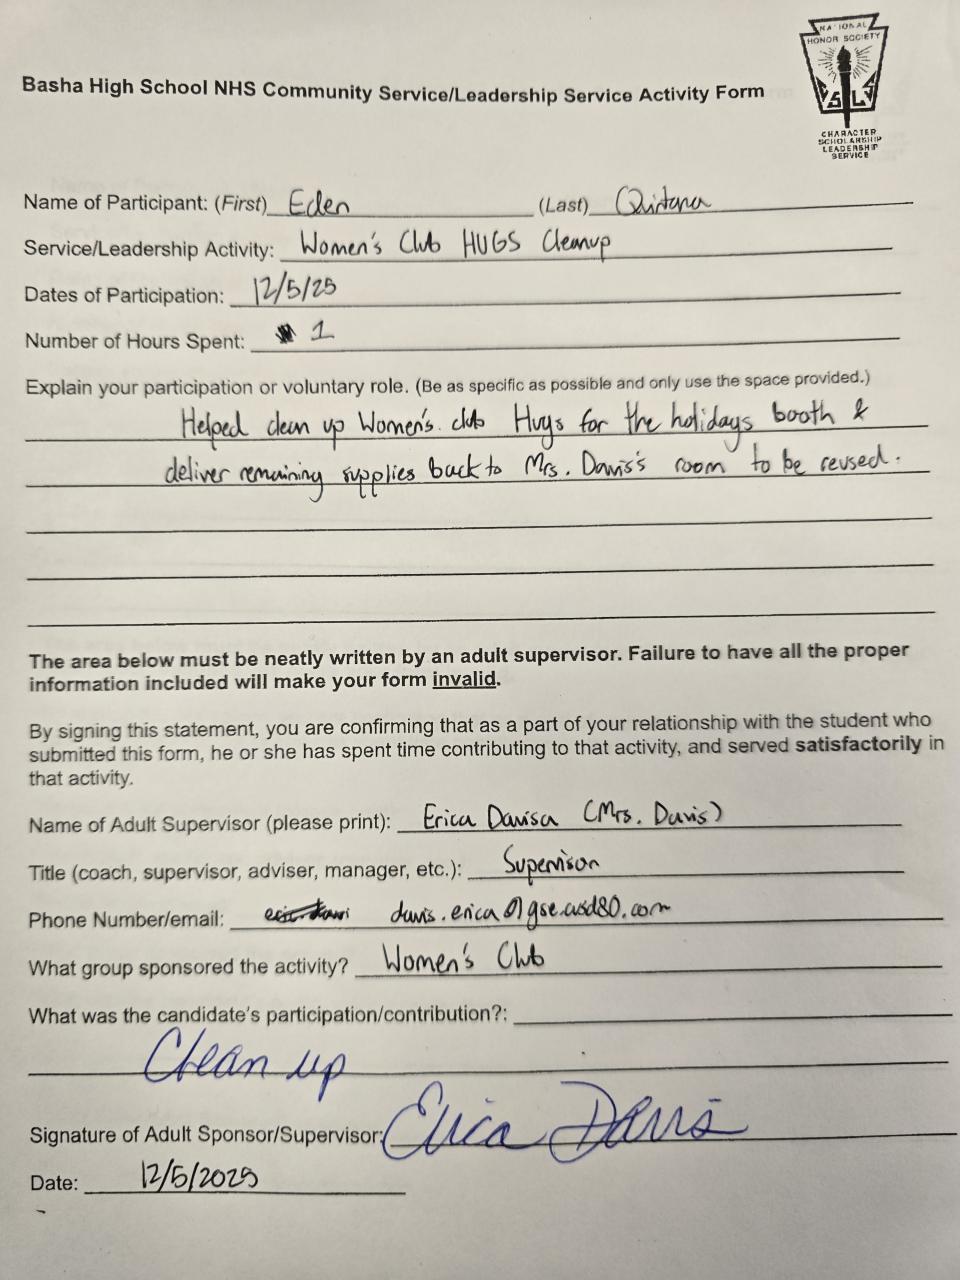 NATIONAL
HONOR SOCIETY
S L
CHARACTER
SCHOLARSHIP
LEADERSHIP
SERVICE
Basha High School NHS Community Service/Leadership Service Activity Form
Name of Participant: (First) Eden (Last) Quintana
Service/Leadership Activity: Women's Club HUGS Cleanup
Dates of Participation: 12/5/25
Number of Hours Spent: 1
Explain your participation or voluntary role. (Be as specific as possible and only use the space provided.)
Helped clean up Women's club Hugs for the holidays booth &
deliver remaining supplies back to Mrs. Davis's room to be reused.
The area below must be neatly written by an adult supervisor. Failure to have all the proper
information included will make your form invalid.
By signing this statement, you are confirming that as a part of your relationship with the student who
submitted this form, he or she has spent time contributing to that activity, and served satisfactorily in
that activity.
Name of Adult Supervisor (please print): Erica Davisa (Mrs. Davis)
Title (coach, supervisor, adviser, manager, etc.): Supervisor
Phone Number/email: davis.erica@gse.cusd80.com
What group sponsored the activity? Women's Club
What was the candidate's participation/contribution?:
Clean up
Signature of Adult Sponsor/Supervisor: Erica Davis
Date: 12/5/2025